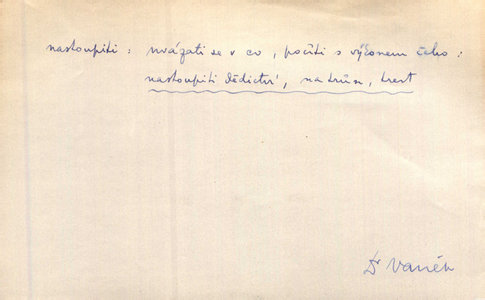 nastoupiti : uvázati se v co, počíti s výkonem čeho :
nastoupiti dědictví, na trůn, trest
Dr Vaněk